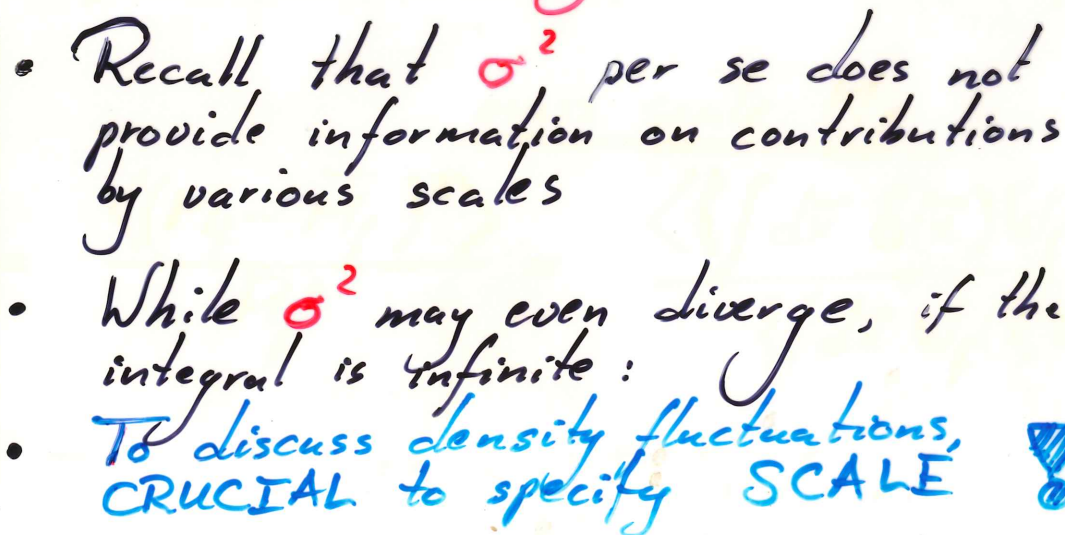 • Recall that σ² per se does not
provide information on contributions
by various scales
• While σ² may even diverge, if the
integral is infinite :
• To discuss density fluctuations,
CRUCIAL to specify SCALE !